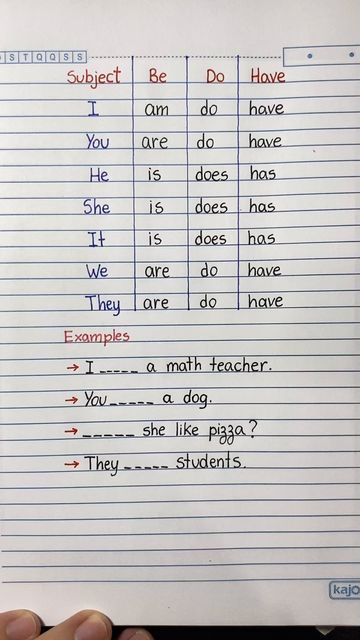 S T Q Q S S
Subject Be Do Have
I am do have
You are do have
He is does has
She is does has
It is does has
We are do have
They are do have
Examples
→ I ----- a math teacher.
→ You ----- a dog.
→ ----- she like pizza?
→ They ----- students.
kajo